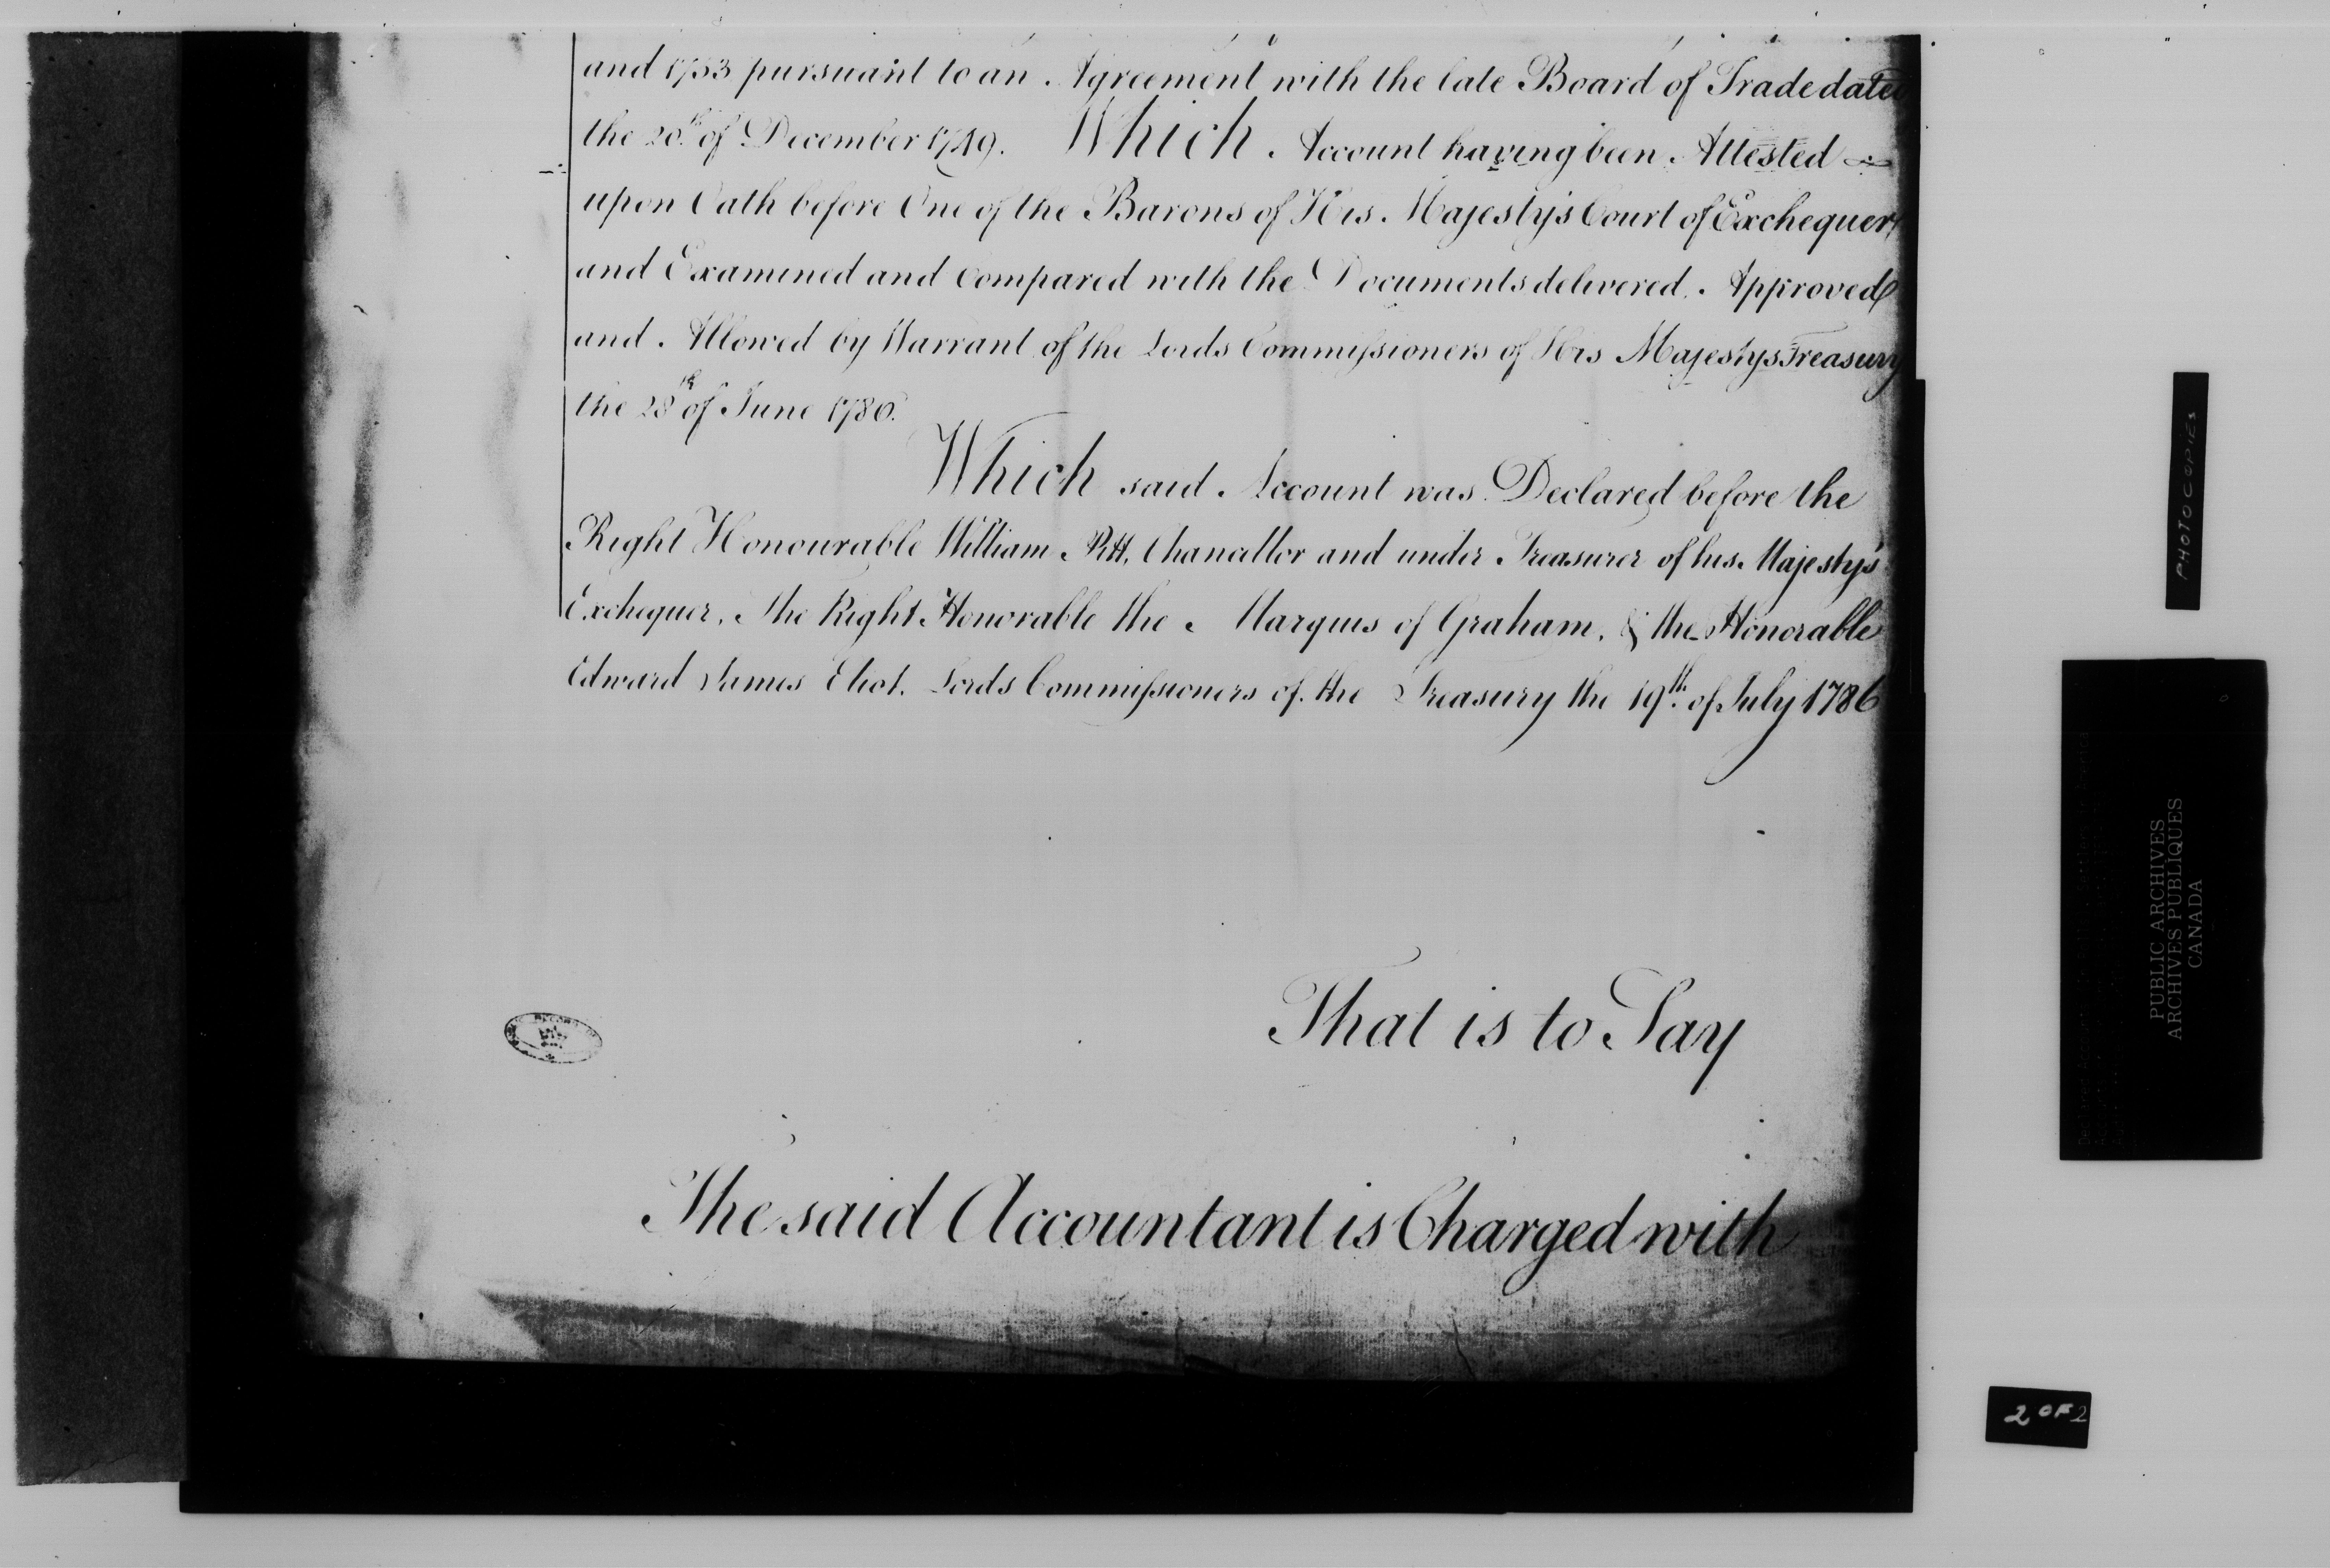 and 1753 pursuant to an Agreement with the late Board of Trade dated
the 20th of December 1749. Which Account having been Attested
upon Oath before One of the Barons of His Majestys Court of Exchequer,
and Examined and Compared with the Documents delivered, Approved
and Allowed by Warrant of the Lords Commissioners of His Majestys Treasury
the 28th of June 1786.
Which said Account was Declared before the
Right Honourable William Pitt, Chancellor and under Treasurer of his Majesty's
Exchequer, The Right Honorable the Marquis of Graham, & the Honorable
Edward James Eliot, Lords Commissioners of the Treasury the 19th of July 1786
That is to Say
The said Accountant is Charged with
PHOTOCOPIES
PUBLIC ARCHIVES
ARCHIVES PUBLIQUES
CANADA
2 OF 2